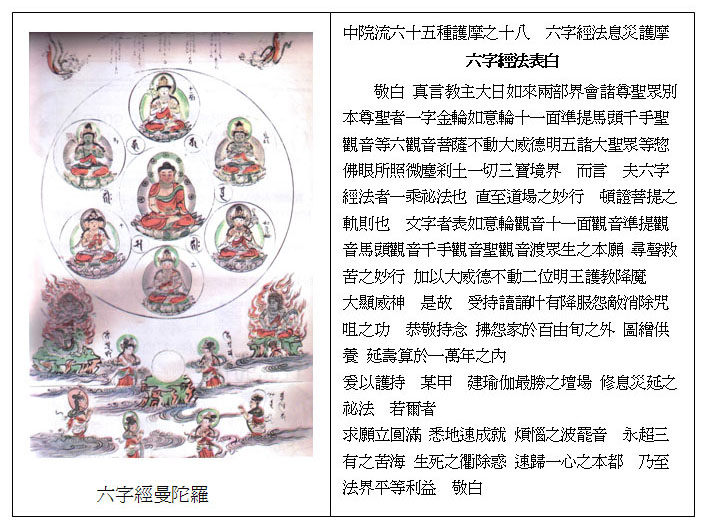 六字經曼陀羅
中院流六十五種護摩之十八　六字經法息災護摩
六字經法表白
敬白 真言教主大日如來兩部界會諸尊聖眾別
本尊聖者一字金輪如意輪十一面準提馬頭千手聖
觀音等六觀音菩薩不動大威德明五諸大聖眾等惣
佛眼所照微塵剎土一切三寶境界　而言　夫六字
經法者一乘祕法也 直至道場之妙行　頓證菩提之
軌則也　文字者表如意輪觀音十一面觀音準提觀
音馬頭觀音千手觀音聖觀音渡眾生之本願 尋聲救
苦之妙行 加以大威德不動二位明王護教降魔
大顯威神　是故　受持讀誦叶有降服怨敵消除咒
咀之功　恭敬持念 拂怨家於百由旬之外 圖繪供
養 延壽算於一萬年之內
爰以護持　某甲　建瑜伽最勝之壇場 修息災延之
祕法　若爾者
求願立圓滿 悉地速成就 煩惱之波罷音　永超三
有之苦海 生死之衢除惑 速歸一心之本都　乃至
法界平等利益　敬白